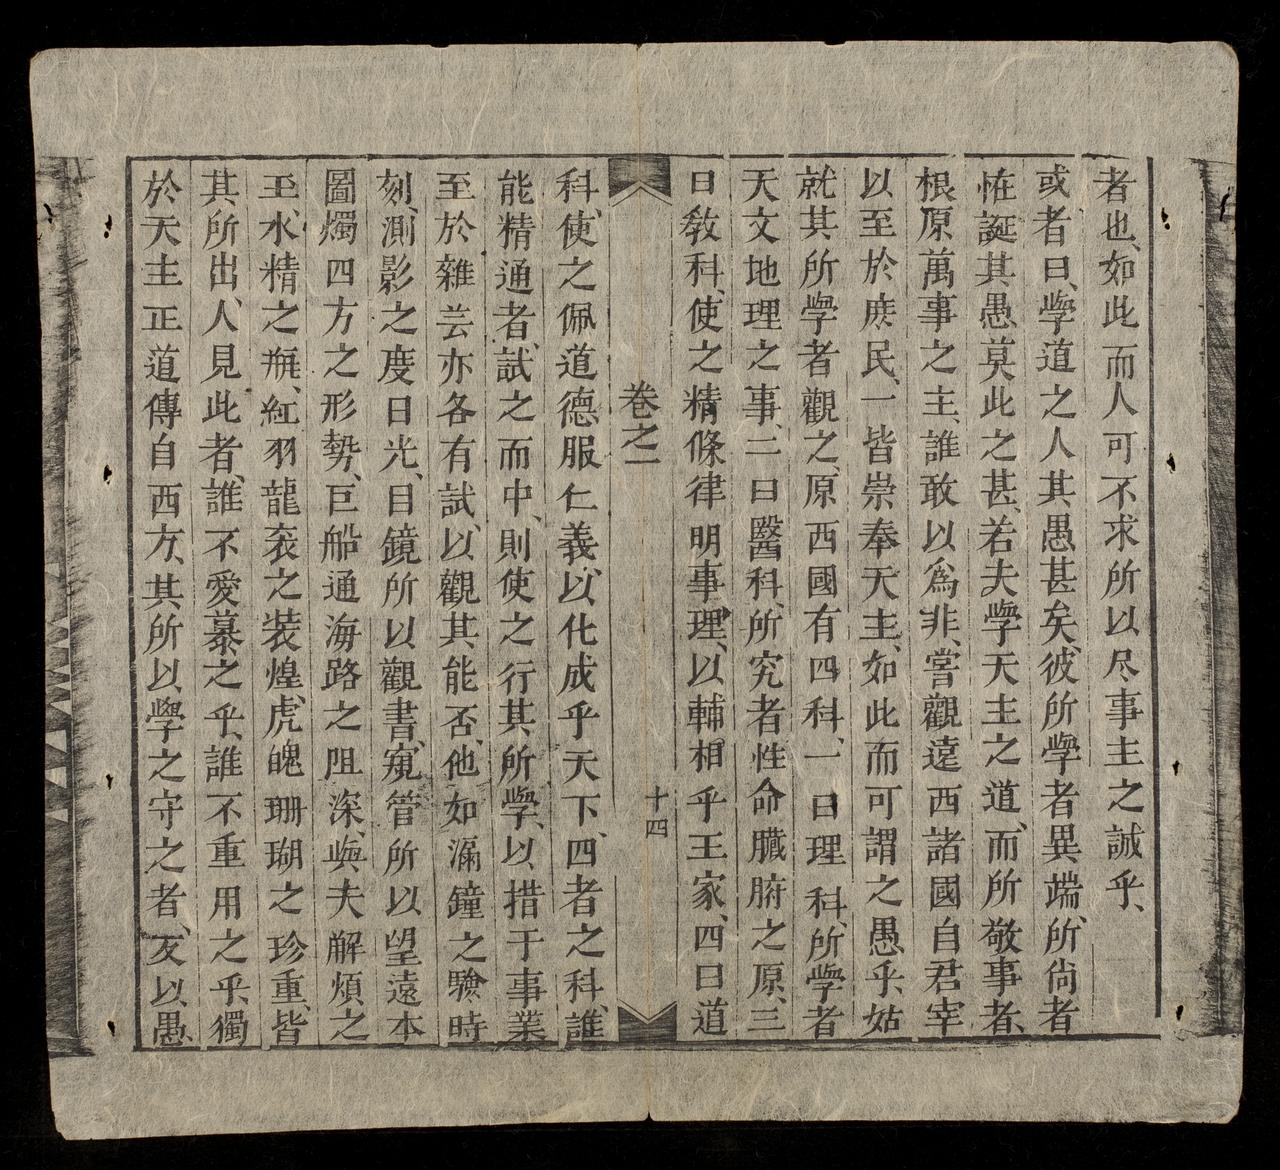 者也、如此而人可不求所以尽事主之誠乎、
或者曰、斈道之人其愚甚矣、彼所斈者異端、所尙者
恠誕其愚莫此之甚、若夫斈天主之道、而所敬事者、
根原萬事之主、誰敢以爲非、嘗觀遠西諸國自君宰
以至於庶民、一皆崇奉天主、如此而可謂之愚乎、姑
就其所斈者觀之、原西國有四科、一曰理科、所斈者
天文地理之事、二曰醫科、所究者性命臓腑之原、三
曰教科、使之精條律明事理、以輔相乎王家、四曰道
卷之一
十四
科、使之佩道德服仁義、以化成乎天下、四者之科、誰
能精通者、試之而中、則使之行其所斈、以措于事業
至於雜芸亦各有試、以觀其能否、他如漏鐘之驗時
刻、測影之度日光、目鏡所以觀書、窺管所以望遠本
圖燭四方之形勢、巨船通海路之阻深、與夫解煩之
玉、水精之瓶、紅羽龍衮之装煌、虎魄珊瑚之珍重、皆
其所出、人見此者、誰不愛慕之乎、誰不重用之乎、獨
於天主正道傳自西方、其所以斈之守之者、反以愚